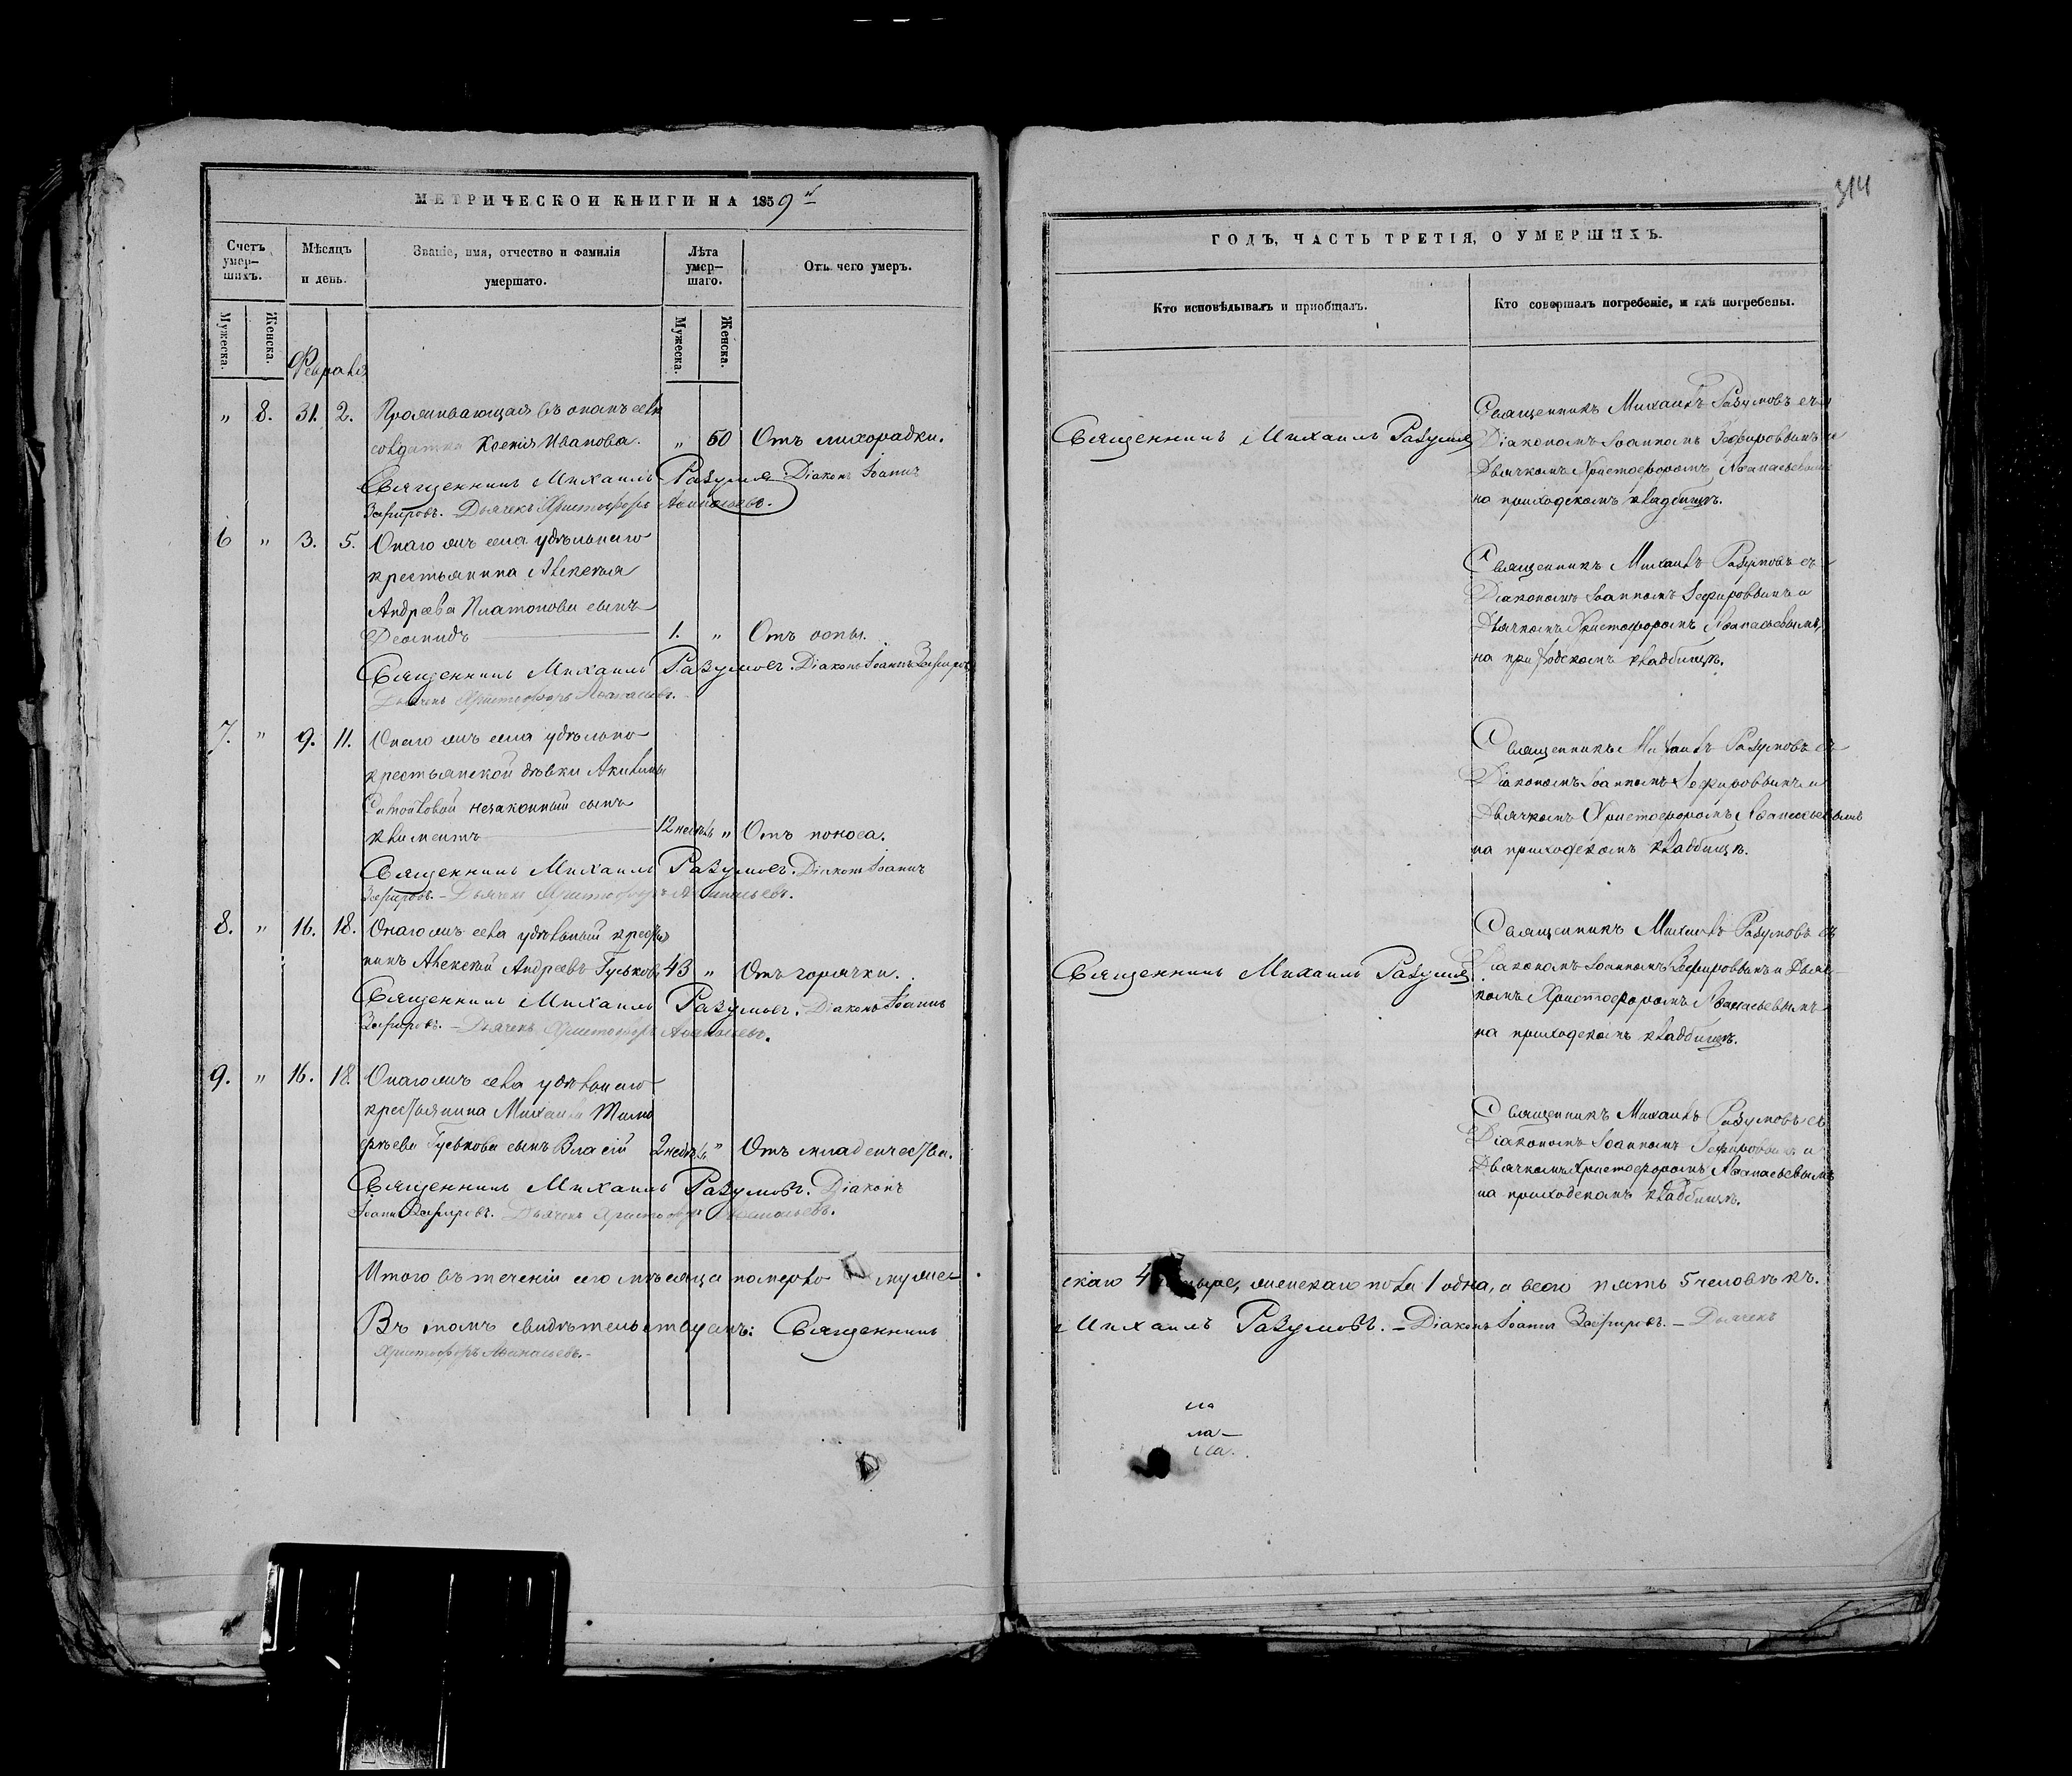 МЕТРИЧЕСКОЙ КНИГИ НА 1859й
Счетъ умер-шихъ.
Мѣсяцъ и день.
Званіе, имя, отчество и фамилія умершаго.
Лѣта умер-шаго.
Отъ чего умеръ.
Мужеска.
Женска.
Мужеска.
Женска.
Февраля
„ 8. 31. 2. Проживающая въ ономъ селѣ
солдатка Ксенія Иванова. „ 60 Отъ лихорадки.
Священникъ Михаилъ Разумовъ. Діаконъ Іоаннъ
Зефировъ. Дьячекъ Христофоръ Аѳанасьевъ.
6 „ 3. 5. Онаго жъ села удѣльнаго
крестьянина Алексѣя
Андреева Платонова сынъ
Леонидъ 1. „ Отъ оспы.
Священникъ Михаилъ Разумовъ. Діаконъ Іоаннъ Зефировъ
Дьячекъ Христофоръ Аѳанасьевъ.
7. „ 9. 11. Онаго жъ села удѣльно
крестьянской дѣвки Акилины
незаконный сынъ
Климентъ 12 недѣль „ Отъ поноса.
Священникъ Михаилъ Разумовъ. Діаконъ Іоаннъ
Зефировъ. – Дьячекъ Христофоръ Аѳанасьевъ.
8. „ 16. 18. Онаго жъ села удѣльный крестья
нинъ Алексѣй Андреевъ Гуськовъ 43 „ Отъ горячки.
Священникъ Михаилъ Разумовъ. Діаконъ Іоаннъ
Зефировъ. – Дьячекъ Христофоръ Аѳанасьевъ.
9. „ 16. 18. Онаго жъ села удѣльнаго
крестьянина Михаила Тимо
фѣева Гуськова сынъ Власій 2 недѣль „ Отъ младенчества.
Священникъ Михаилъ Разумовъ. Діаконъ
Іоаннъ Зефировъ. Дьячекъ Христофоръ Аѳанасьевъ.
Итого въ теченіи сего мѣсяца померло мужес
Въ томъ свидѣтельствуемъ: Священникъ
Христофоръ Аѳанасьевъ. –
314
ГОДЪ, ЧАСТЬ ТРЕТІЯ, О УМЕРШИХЪ.
Кто исповѣдывалъ и пріобщалъ.
Кто совершалъ погребеніе, и гдѣ погребены.
Священникъ Михаилъ Разумовъ
Священникъ Михаилъ Разумовъ съ
Діакономъ Іоанномъ Зефировымъ и
Дьячкомъ Христофоромъ Аѳанасьевымъ
на приходскомъ кладбищѣ.
Священникъ Михаилъ Разумовъ съ
Діакономъ Іоанномъ Зефировымъ и
Дьячкомъ Христофоромъ Аѳанасьевымъ,
на приходскомъ кладбищѣ.
Священникъ Михаилъ Разумовъ съ
Діакономъ Іоанномъ Зефировымъ и
Дьячкомъ Христофоромъ Аѳанасьевымъ
на приходскомъ кладбищѣ.
Священникъ Михаилъ Разумовъ
Священникъ Михаилъ Разумовъ съ
Діакономъ Іоанномъ Зефировымъ и Дьяч-
комъ Христофоромъ Аѳанасьевымъ
на приходскомъ кладбищѣ.
Священникъ Михаилъ Разумовъ съ
Діакономъ Іоанномъ Зефировымъ и
Дьячкомъ Христофоромъ Аѳанасьевымъ
на приходскомъ кладбищѣ.
скаго 4 четыре, женскаго пола 1 одна, а всего пять 5 человѣкъ.
Михаилъ Разумовъ. – Діаконъ Іоаннъ Зефировъ. – Дьячекъ